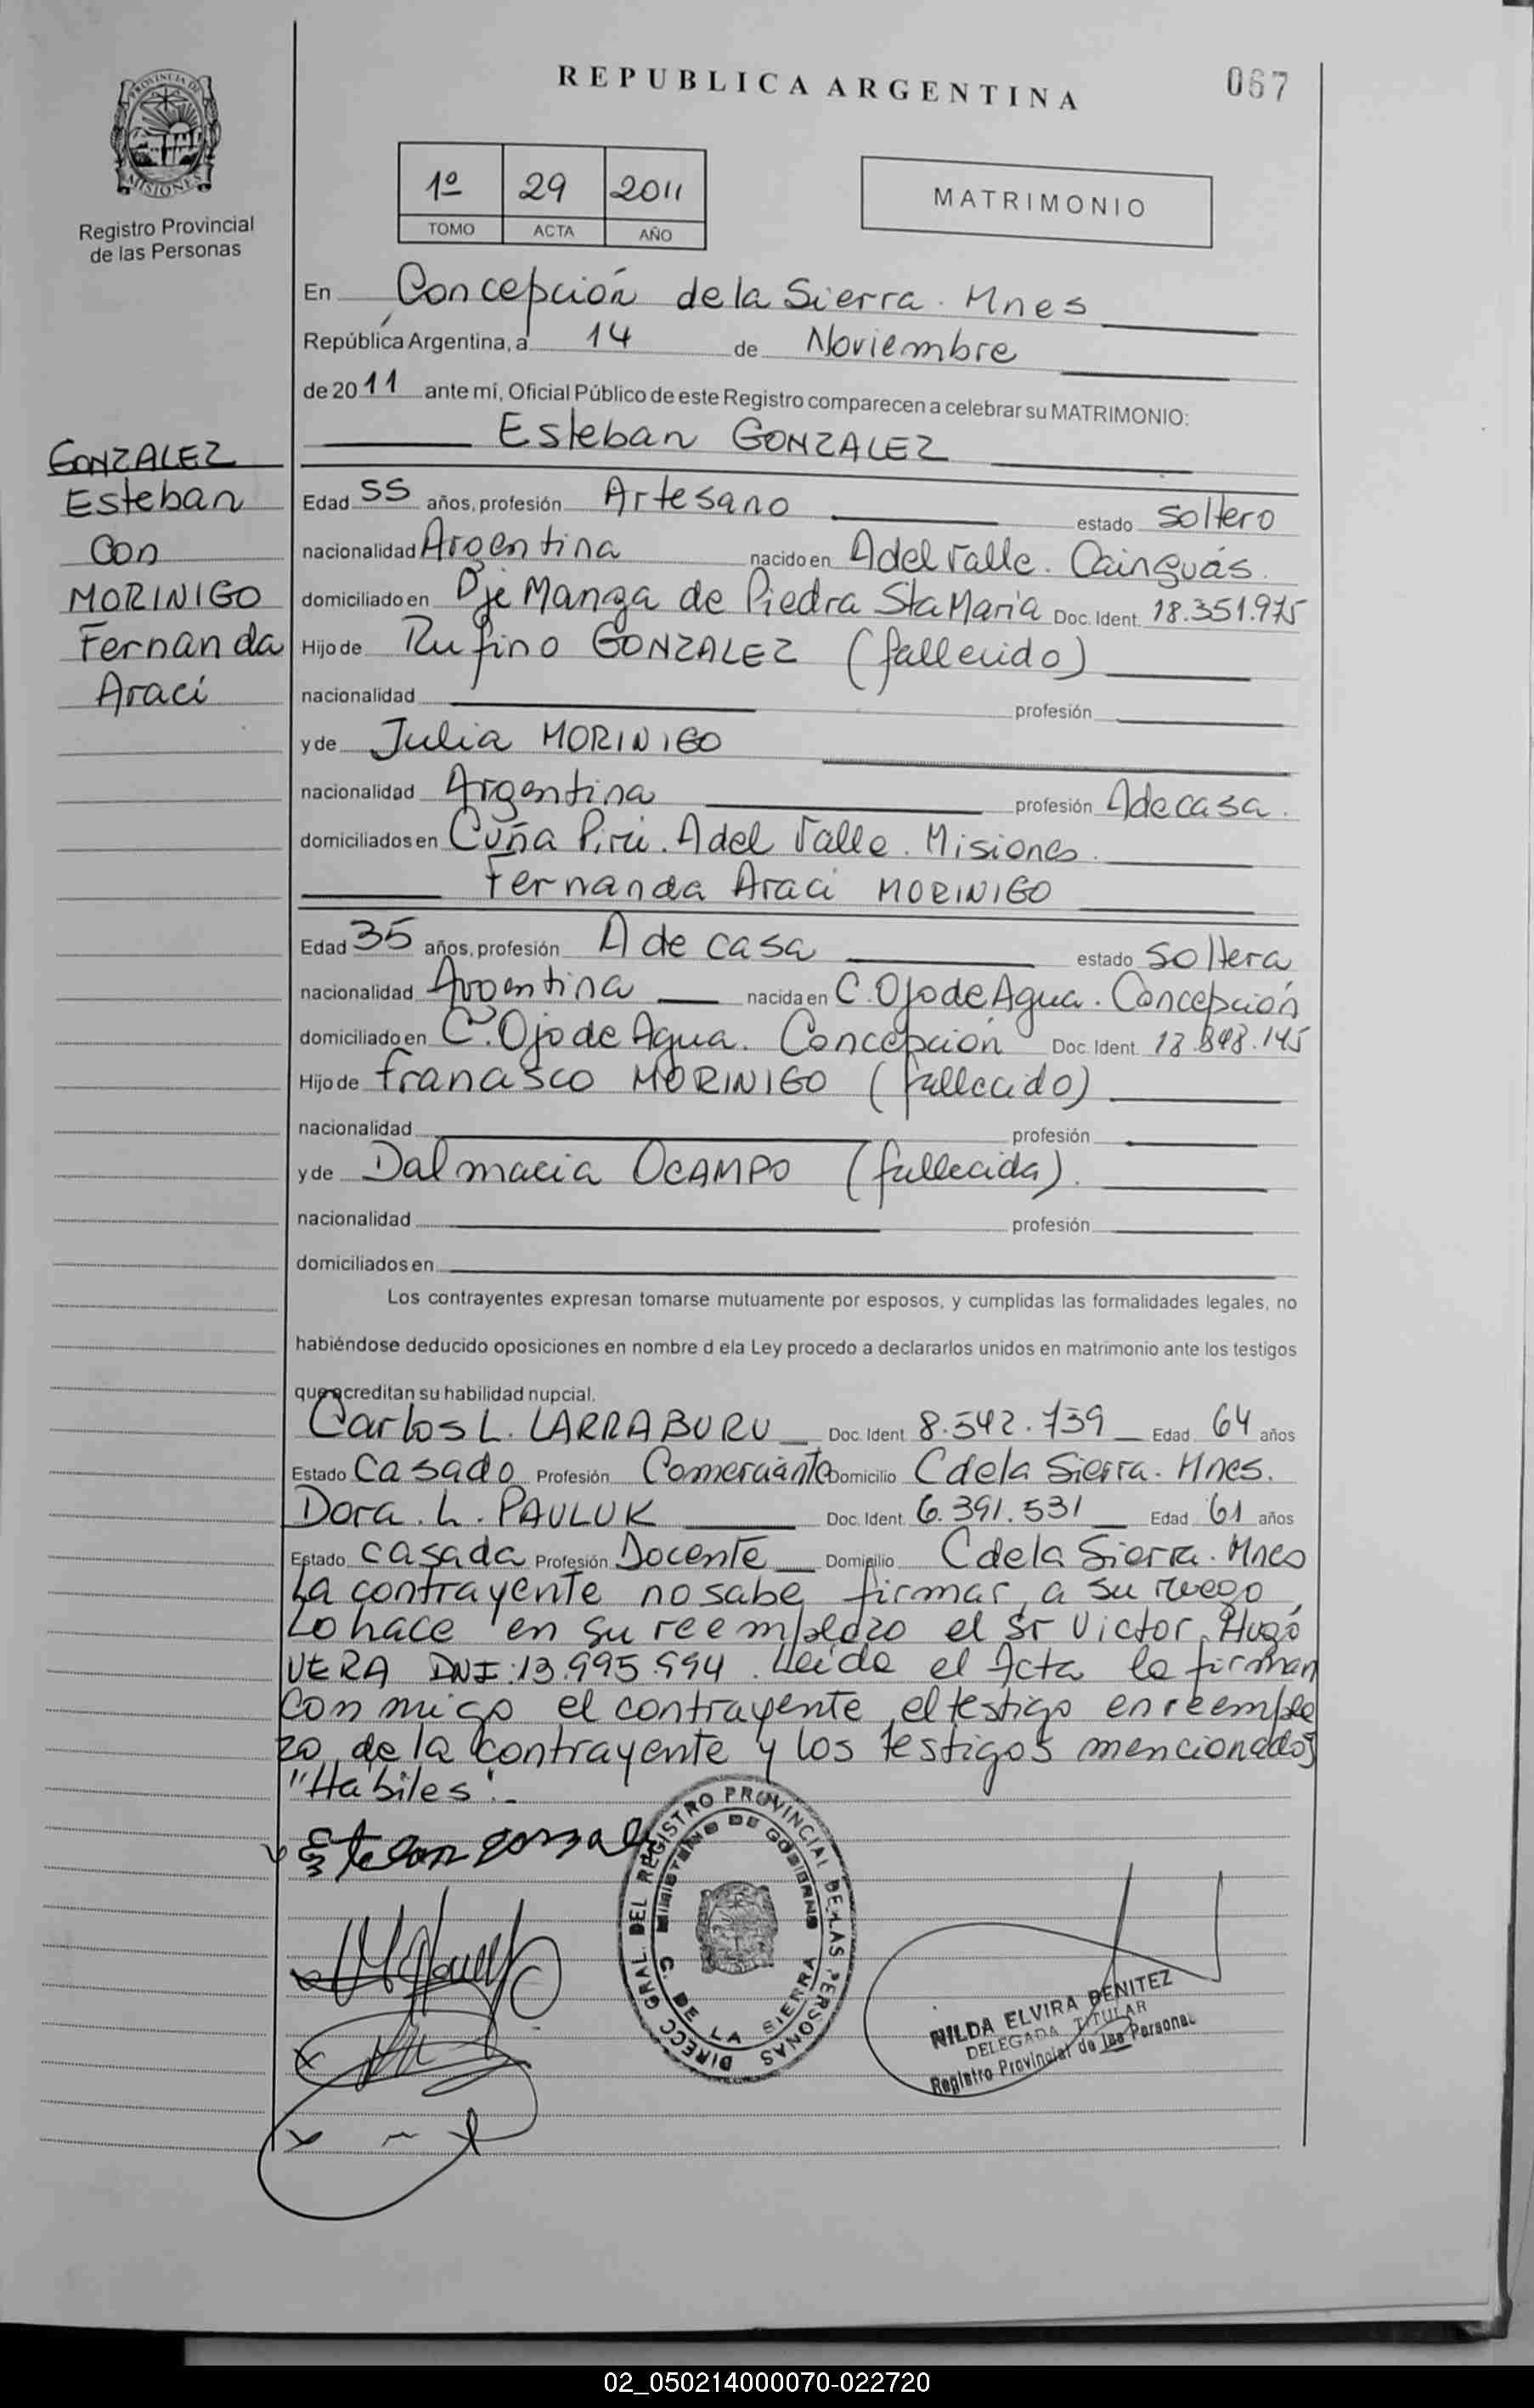 REPUBLICA ARGENTINA
067
PROVINCIA DE MISIONES
Registro Provincial
de las Personas
1º 29 2011
TOMO ACTA AÑO
MATRIMONIO
En Concepción de la Sierra. Mnes
República Argentina, a 14 de Noviembre
de 2011 ante mí, Oficial Público de este Registro comparecen a celebrar su MATRIMONIO:
Esteban GONZALEZ
GONZALEZ
Esteban
Con
MORINIGO
Fernanda
Araci
Edad 55 años, profesión Artesano estado Soltero
nacionalidad Argentina nacido en A del Valle. Cainguás.
domiciliado en Pje Manga de Piedra Sta María Doc. Ident. 18.351.975
Hijo de Rufino GONZALEZ (fallecido)
nacionalidad profesión
y de Julia MORINIGO
nacionalidad Argentina profesión A de casa.
domiciliados en Cuña Pirú. A del Valle. Misiones.
Fernanda Araci MORINIGO
Edad 35 años, profesión A de casa estado Soltera
nacionalidad Argentina nacida en C. Ojo de Agua. Concepción
domiciliado en C. Ojo de Agua. Concepción Doc. Ident.
Hijo de Francisco MORINIGO (fallecido)
nacionalidad profesión
y de Dalmacia OCAMPO (fallecida).
nacionalidad profesión
domiciliados en
Los contrayentes expresan tomarse mutuamente por esposos, y cumplidas las formalidades legales, no
habiéndose deducido oposiciones en nombre d ela Ley procedo a declararlos unidos en matrimonio ante los testigos
que acreditan su habilidad nupcial.
Carlos L. LARRABURU Doc. Ident 8.542.739 Edad 64 años
Estado Casado Profesión Comerciante Domicilio C de la Sierra. Mnes.
Dora. L. PAULUK Doc. Ident. 6.391.531 Edad 61 años
Estado casada Profesión Docente Domicilio C de la Sierra. Mnes
La contrayente no sabe firmar, a su ruego,
Lo hace en su reemplazo el Sr Victor Hugo
VERA DNI: 13.995.994. Leída el Acta la firman
Conmigo el contrayente, el testigo en reempla
zo de la contrayente y los testigos mencionados
"Habiles".-
Esteban gonzalez
DIRECC GRAL. DEL REGISTRO PROVINCIAL DE LAS PERSONAS
MINISTERIO DE GOBIERNO
C. DE LA SIERRA
NILDA ELVIRA BENITEZ
DELEGADA TITULAR
Registro Provincial de las Personas
02_050214000070-022720